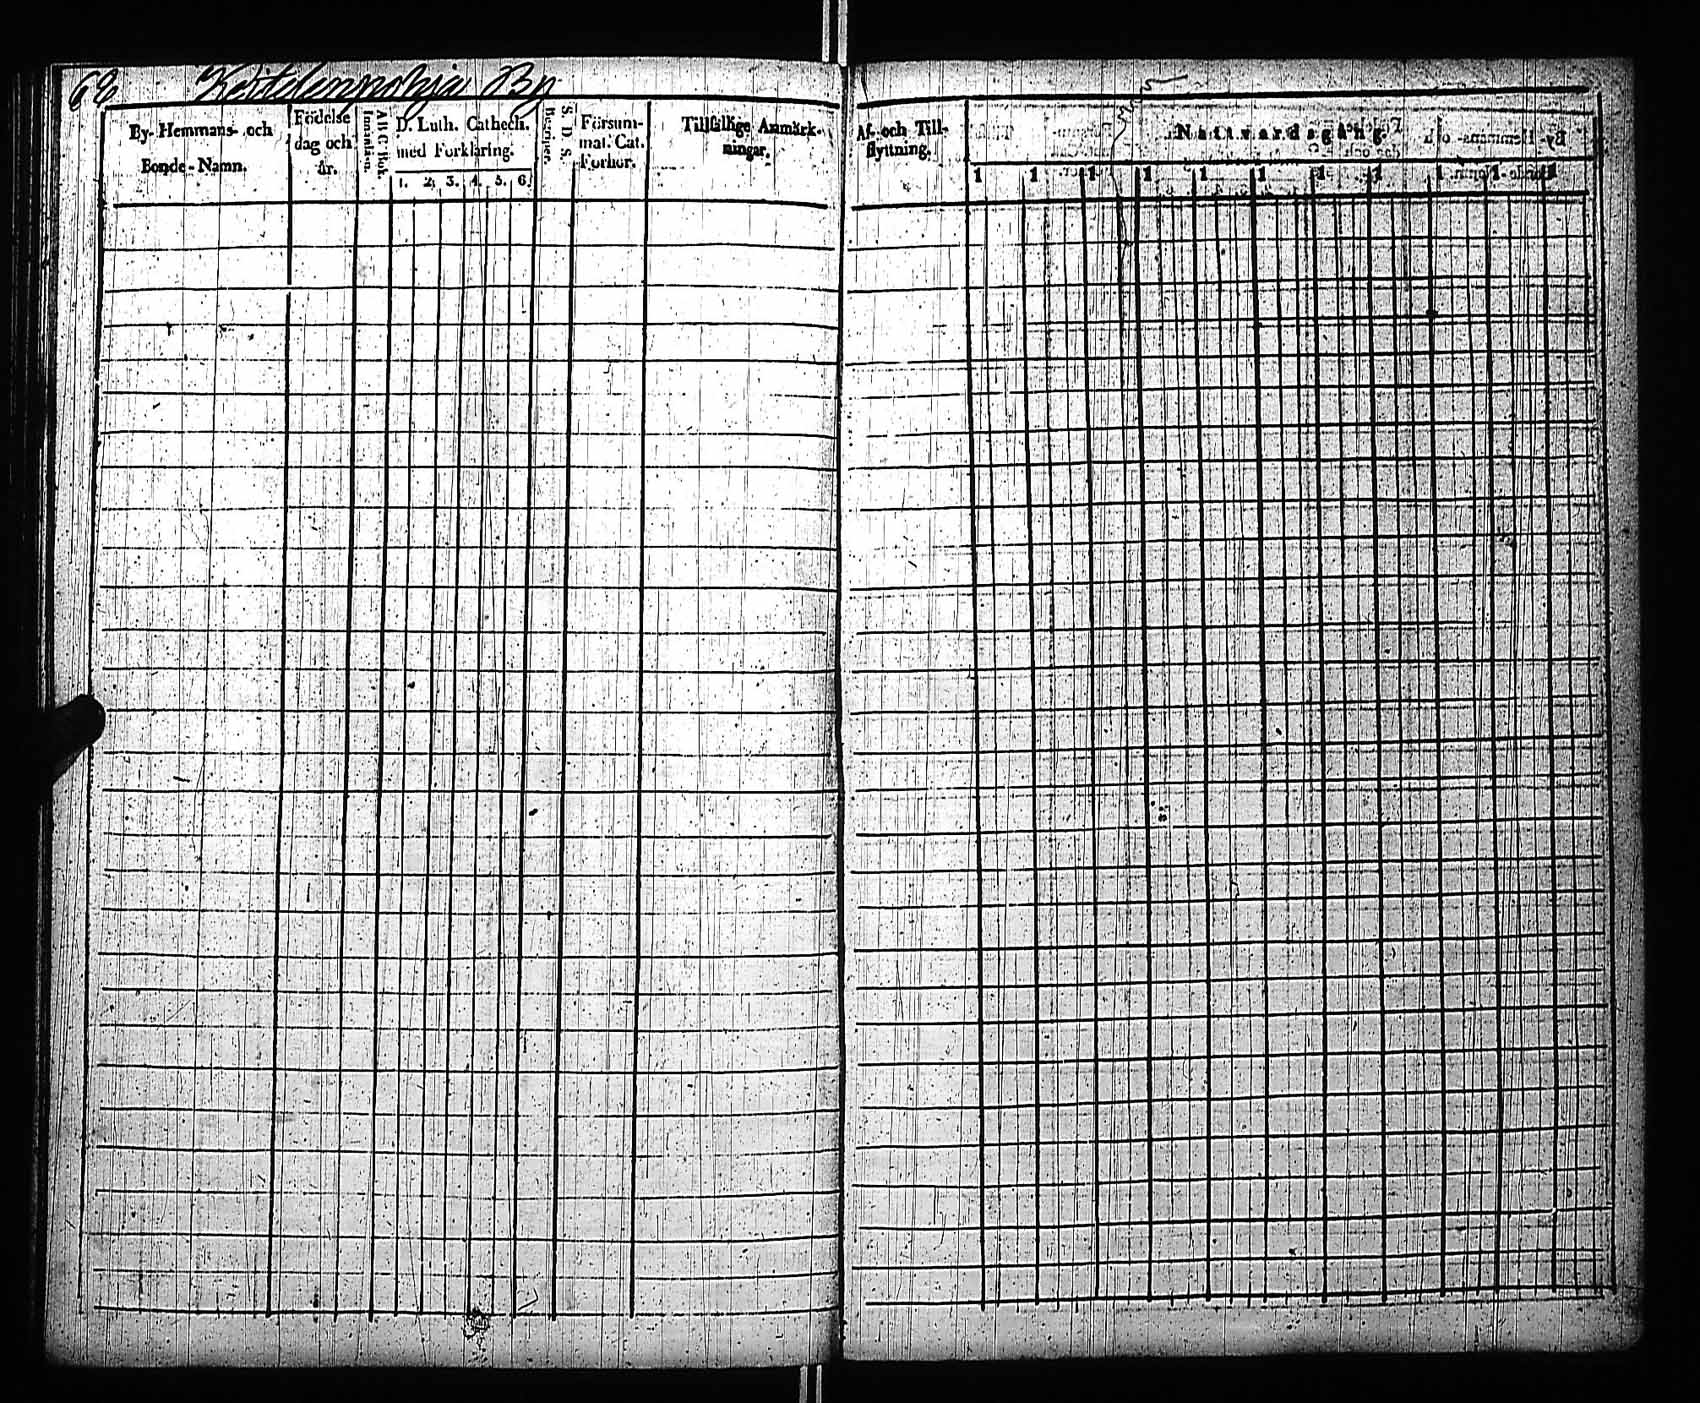 68 Keitelenpohja By
By- Hemmans- och
Bonde-Namn.
Födelse
dag och
år.
A B C Bok.
Innanläsn.
D. Luth. Cathech.
med Förklaring.
1. 2. 3. 4. 5. 6.
S. D. S.
Begriper.
Försum-
mat. Cat.
Förhör.
Tillfällige Anmärk-
ningar.
Af- och Till-
flyttning.
Nattvardsgång.
1 1 1 1 1 1 1 1 1 1 1